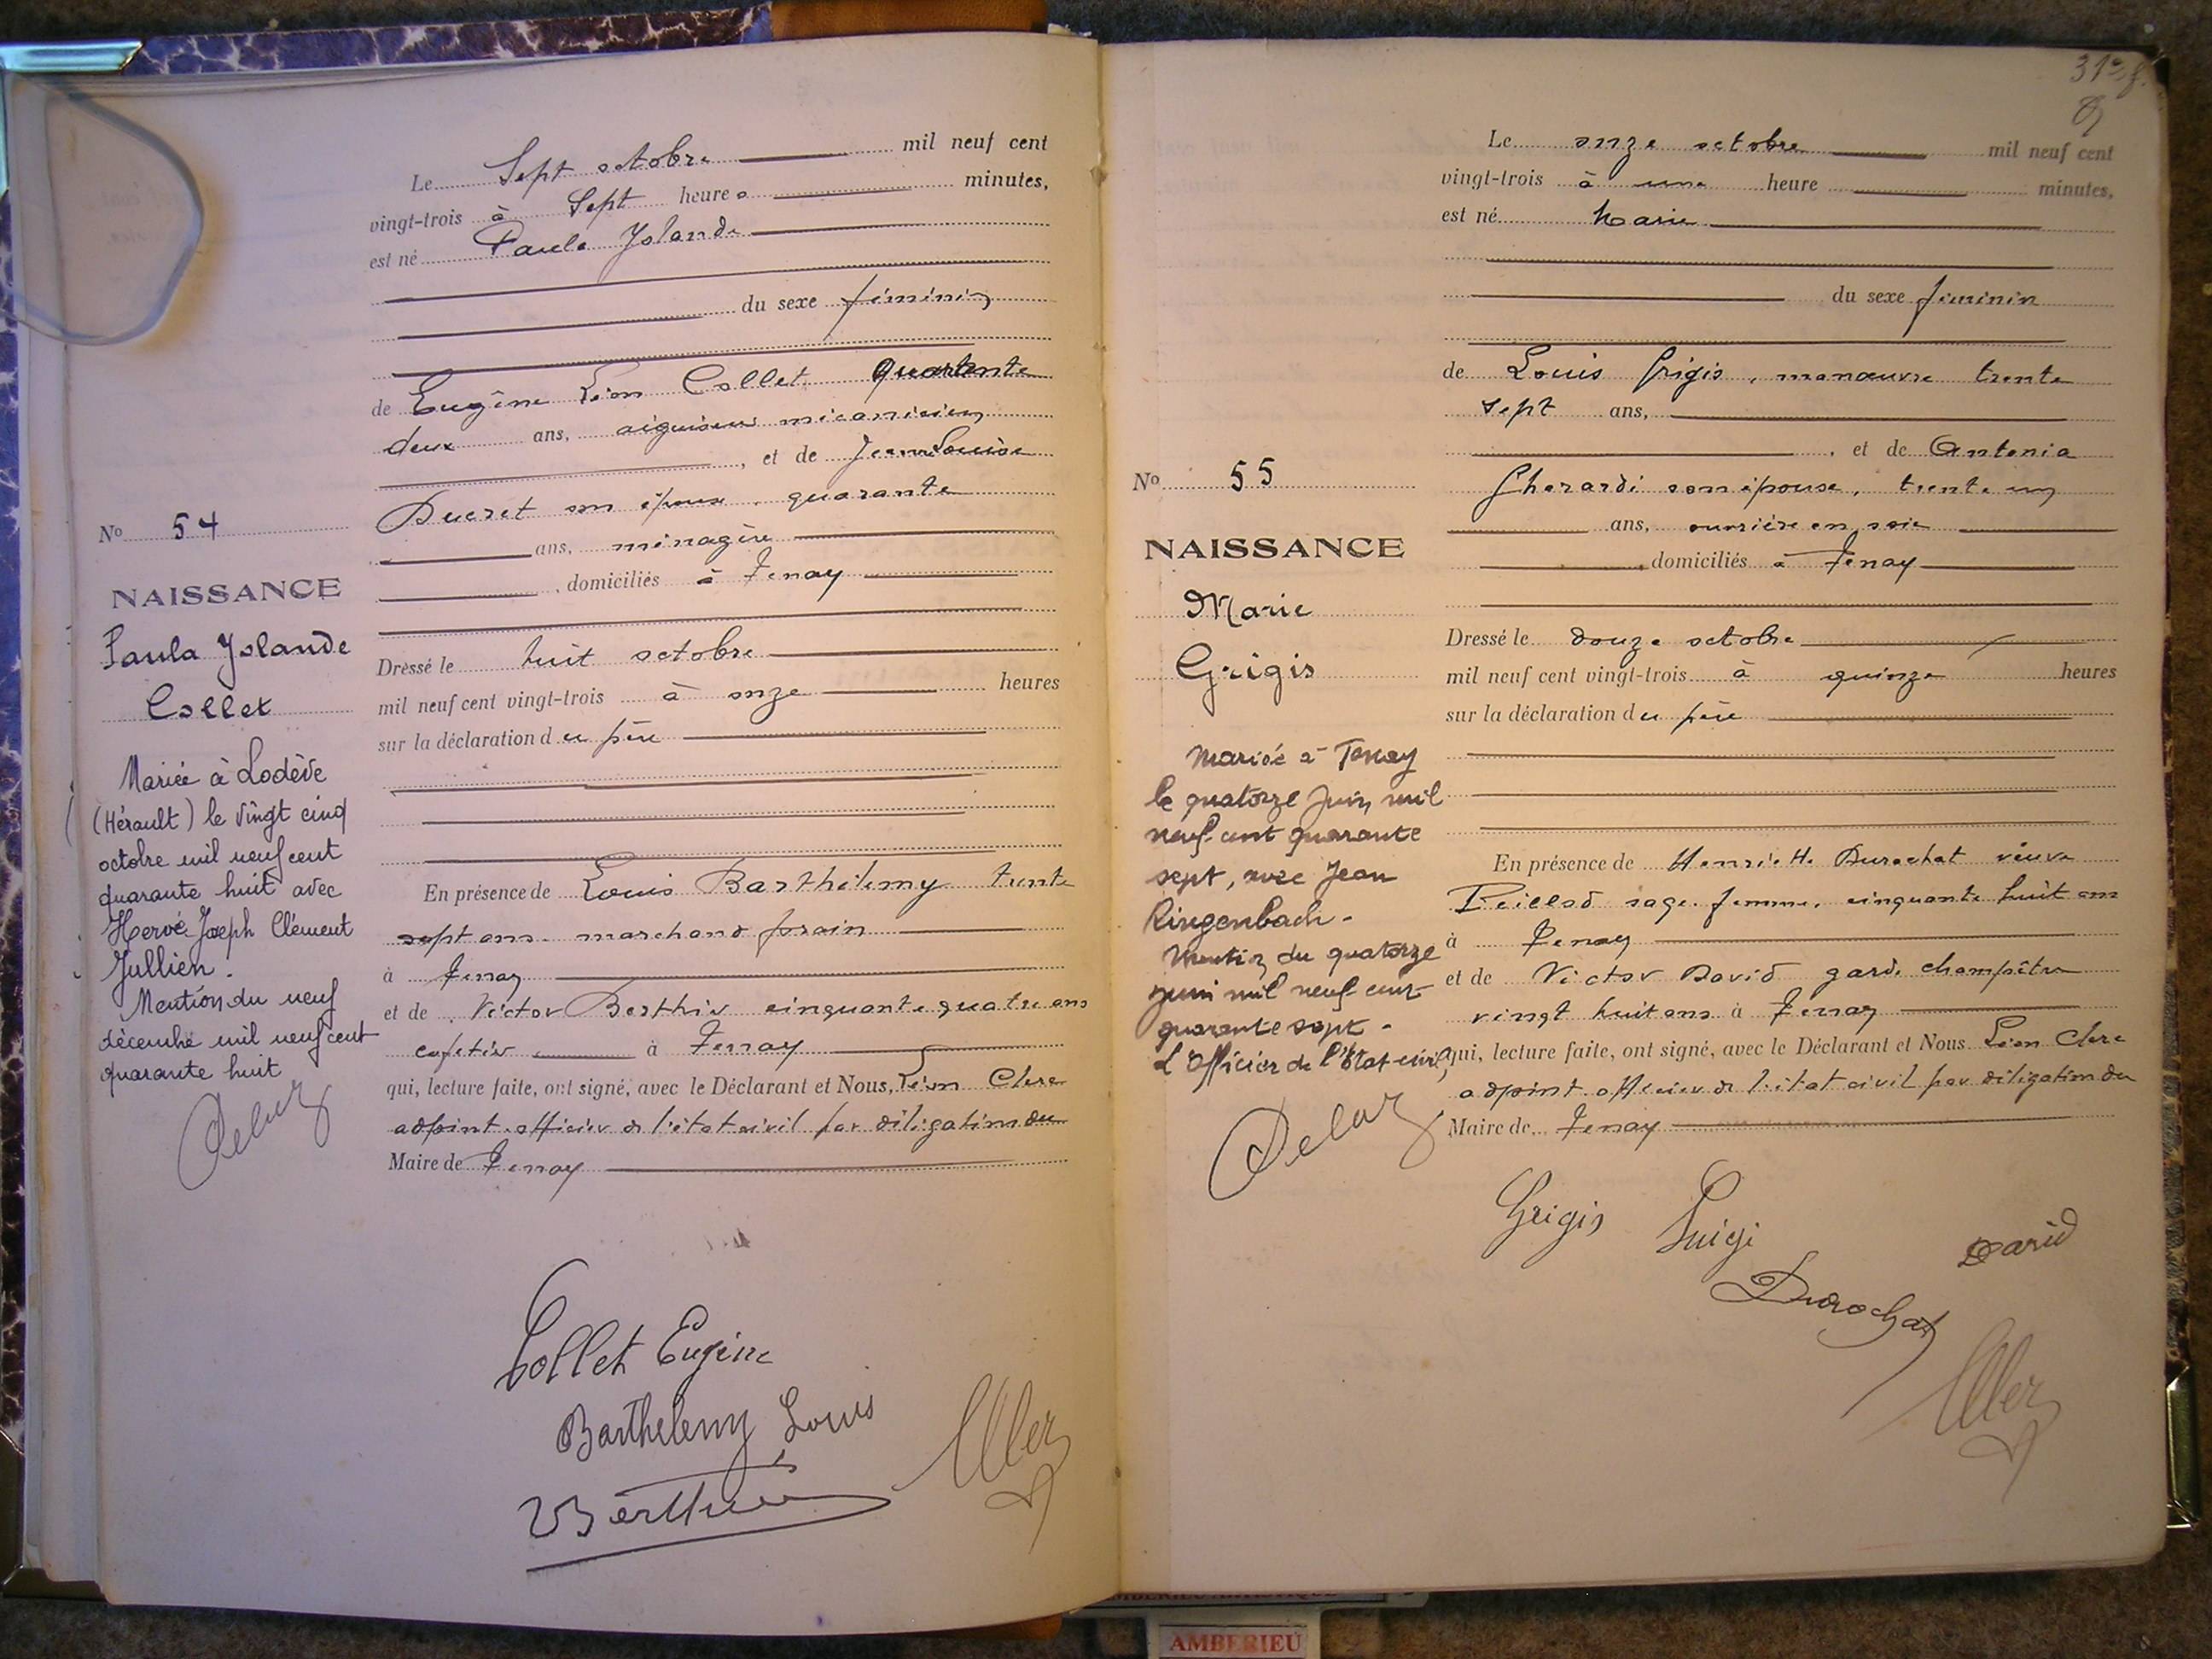 Le Sept octobre mil neuf cent
vingt-trois à Sept heures minutes,
est né Paule Yolande
du sexe féminin
de Eugène Léon Collet quarante
deux ans, aiguiseur mécanicien
, et de Jeanne Louise
Ducret son épouse, quarante
ans, ménagère
, domiciliés à Tenay
Dressé le huit octobre
mil neuf cent vingt-trois à onze heures
sur la déclaration du père
En présence de Louis Barthélemy trente
sept ans marchand forain
à Tenay
et de Victor Berthier cinquante quatre ans
cafetier à Tenay
qui, lecture faite, ont signé, avec le Déclarant et Nous, Léon Clerc
adjoint officier de l'état civil par délégation du
Maire de Tenay
No 54
NAISSANCE
Paula Yolande
Collet
Mariée à Lodève
(Hérault) le vingt cinq
octobre mil neuf cent
quarante huit avec
Hervé Joseph Clément
Jullien.
Mention du neuf
décembre mil neuf cent
quarante huit
Collet Eugène
Barthelemy Louis
Berthier
31e f.
Le onze octobre mil neuf cent
vingt-trois à une heure minutes,
est né Marie
du sexe féminin
de Louis Grigis, manœuvre trente
sept ans,
, et de Antonia
Gherardi son épouse, trente un
ans, ouvrière en soie
, domiciliés à Tenay
Dressé le douze octobre
mil neuf cent vingt-trois à quinze heures
sur la déclaration du père
En présence de Henriette Durochat veuve
sage-femme, cinquante huit ans
à Tenay
et de Victor David garde champêtre
vingt huit ans à Tenay
qui, lecture faite, ont signé, avec le Déclarant et Nous Léon Clerc
adjoint officier de l'état civil par délégation du
Maire de Tenay
No 55
NAISSANCE
Marie
Grigis
Mariée à Tenay
le quatorze juin mil
neuf cent quarante
sept, avec Jean
Ringenbach.
Mention du quatorze
juin mil neuf cent
quarante sept.
L'Officier de l'état civil,
Grigis Luigi
David
Durochat
AMBERIEU